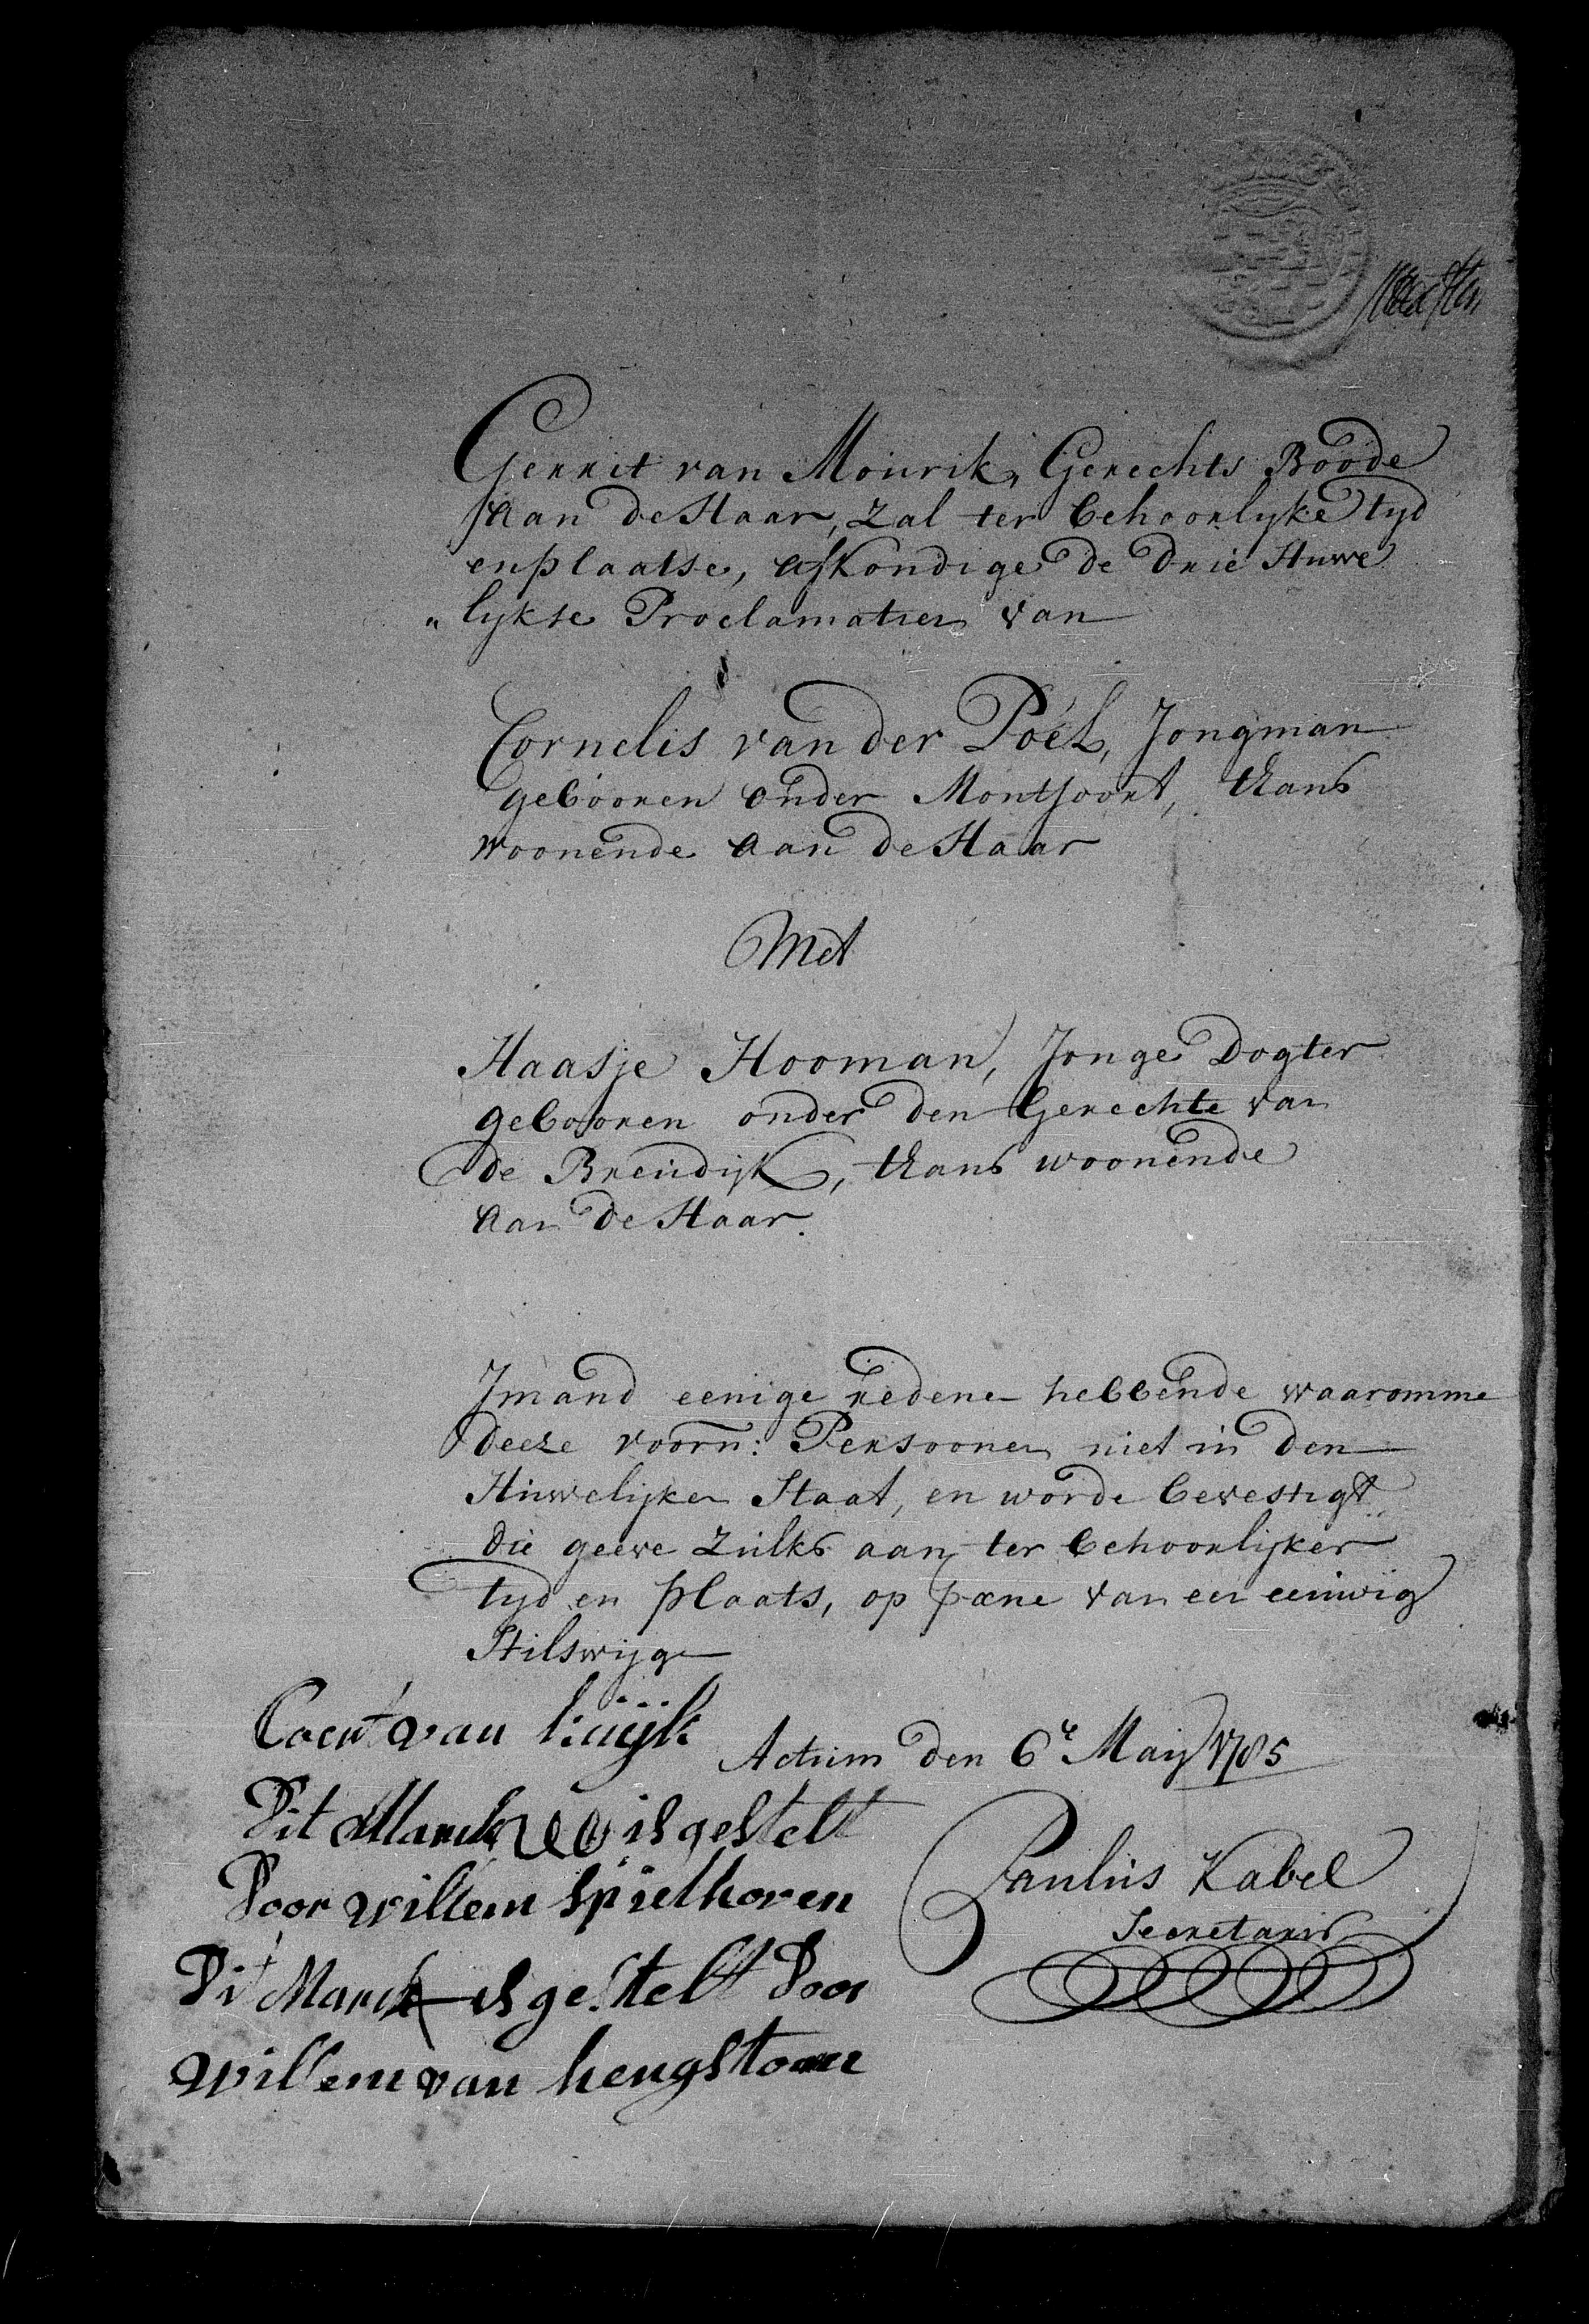 Gerrit van Mourik, Gerechts Boode
aan de Haar, zal ter behoorlyke tyd
en plaatse, afkondige de drie Huwe
„lykse Proclamatien van
Cornelis van der Poel, Jongman
gebooren onder Montfoort, thans
woonende aan de Haar
Met
Haasje Hooman, Jonge Dogter
gebooren onder den Gerechte van
de Breudijk, thans woonende
aan de Haar.
Imand eenige redenen hebbende waaromme
deeze voorn: Persoonen niet in den
Huwelijken Staat, en worde bevestigt
die geeve zulks aan, ter behoorlijker
tyd en plaats, op pæne van een eeuwig
Stilswijgen
Coert van kuijk
Actum den 6e Maij 1785
Dit Marck is gestelt
Door willem Spielhoven
Paulus Kabel
Secretaris
Dit Marck is gestelt Door
willem van hengstom